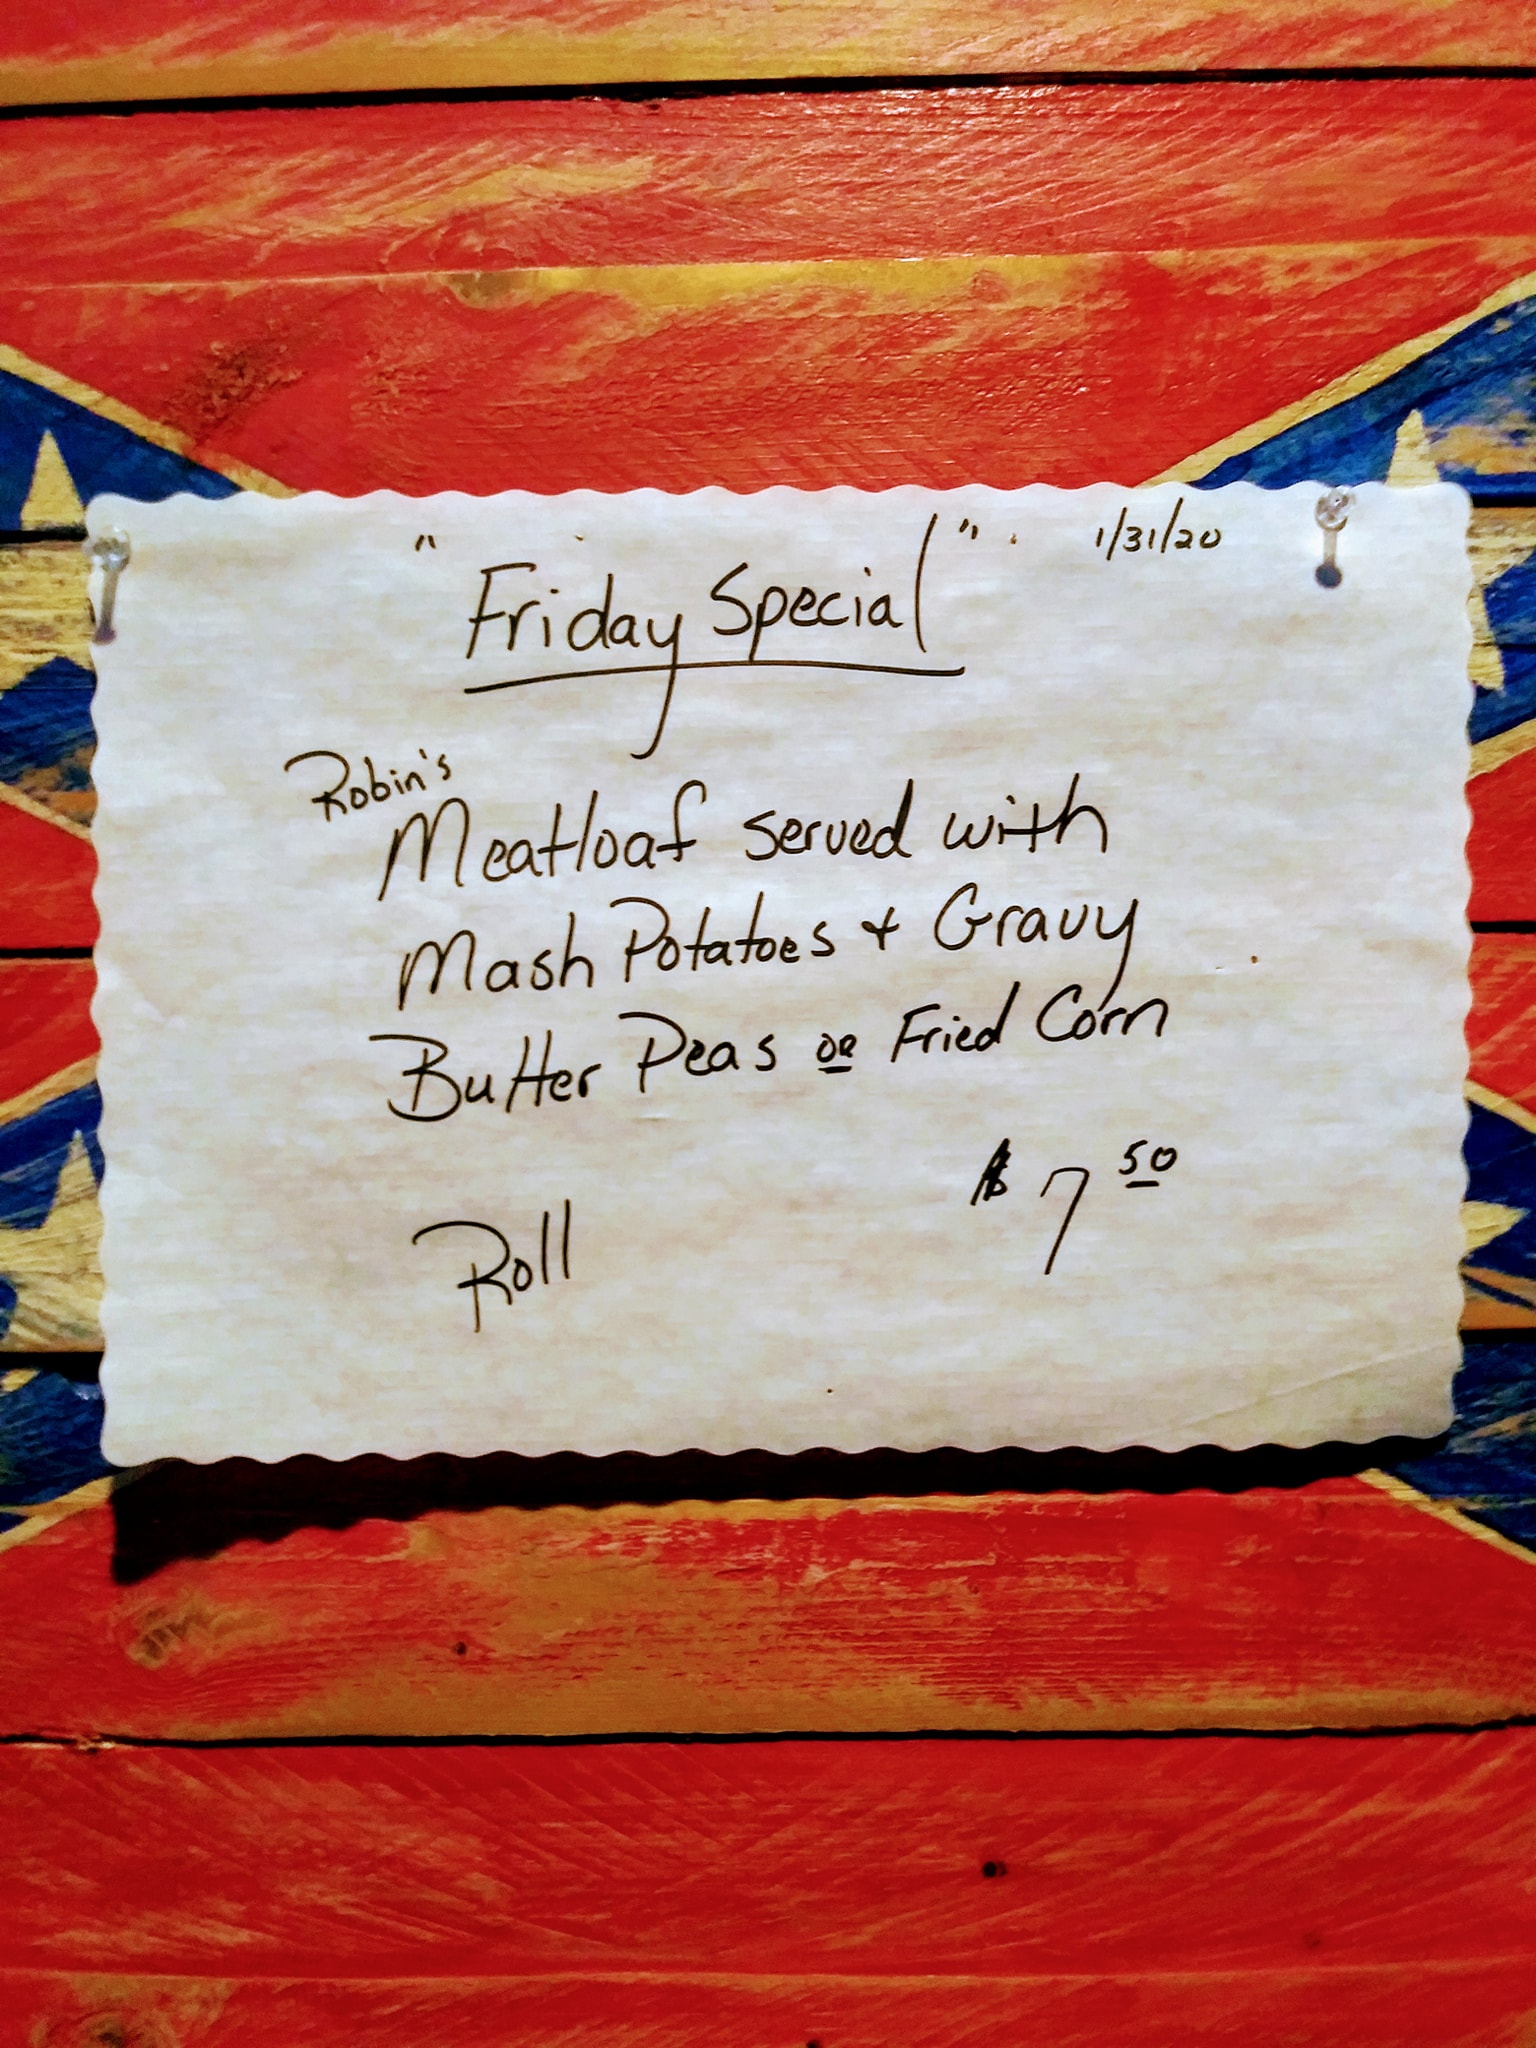 "Friday Special" 1/31/20
Robin's
Meatloaf served with
Mash Potatoes + Gravy
Butter Peas or Fried Corn
$7 50
Roll